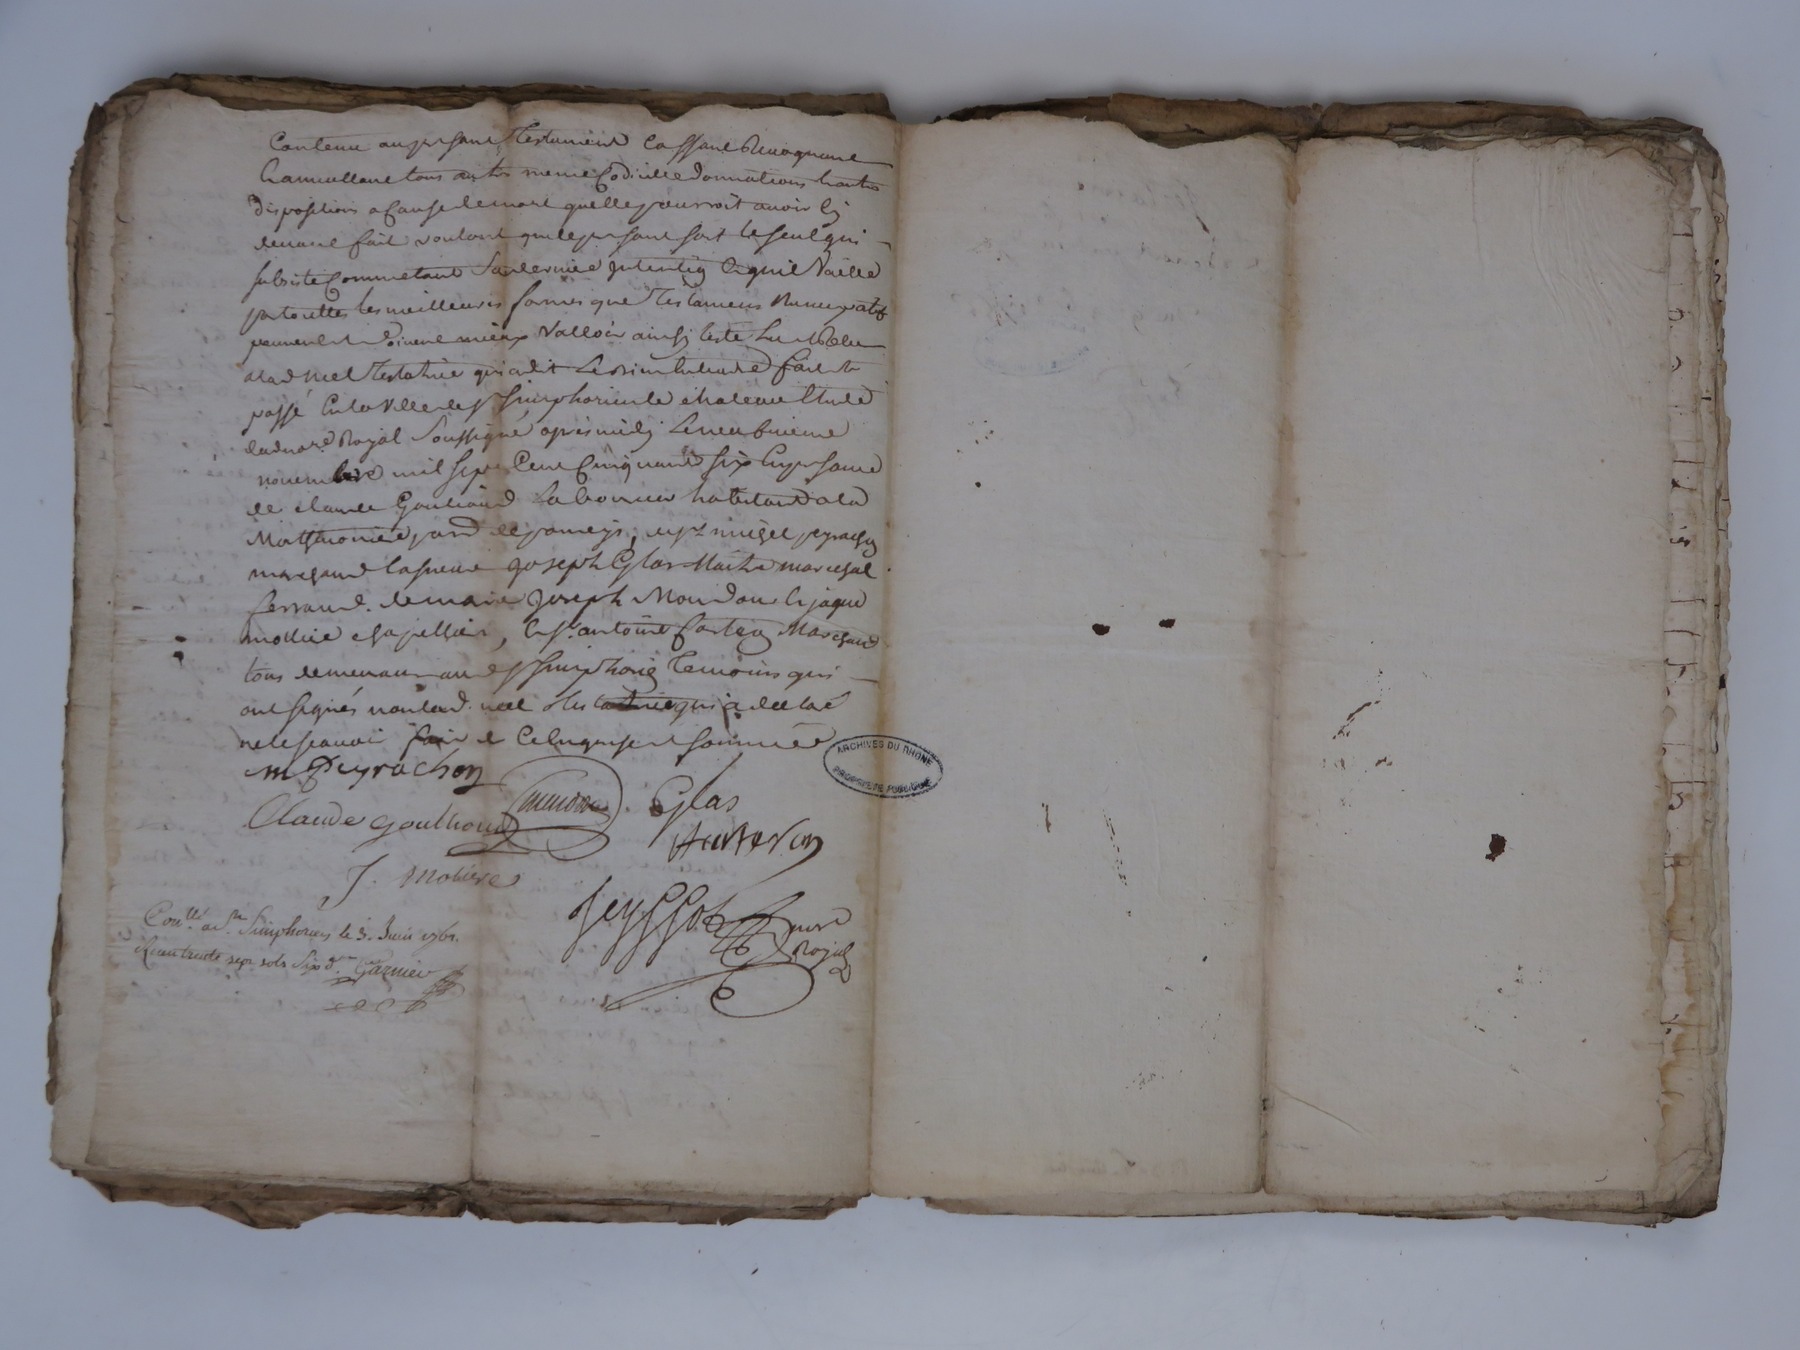 Contenu au present testament Cassant Revoquant
& annullant tous autres meme Codicille donnations & autres
dispositions a Cause de mort quelle pourroit avoir cy
devant fait voulant que le present soit le seul qui
subsiste Sa derniere Intention & quil Vaille
par touttes les meilleures formes que testamens nuncupatif
peuvent & doivent mieux Valloir ainsy leste Lu & Releu
a lad testatrice qui a dit Le bien Entendre fait &
passé En la Ville de St Simphorien le chateau Etude
dud nore Royal Soussigné apres midy Le neufvieme
novembre mil sept Cent Cinquante six En presence
de claude Goulhoud Laboureur habitant a la
par de pomeys, michel peyrachon
marchand Joseph Glas Maitre marechal
ferrand, Joseph & jaque
molliere chapellier, & sr antoine Marchand
tous demeurant aud St Simphorien temoins qui
ont signés non lad testatrice qui a declaré
ne le scavoir faire de Ce Enquise & sommée
M Peyrachon
Claude Goulhoud Glas
J. Moliere
Teyssot nore
Royal
Conllé a St Simphorien le 3. Juin 1761.
Reçu trente sept sols six drs Garnier
ARCHIVES DU RHONE
PROPRIÉTÉ PUBLIQUE